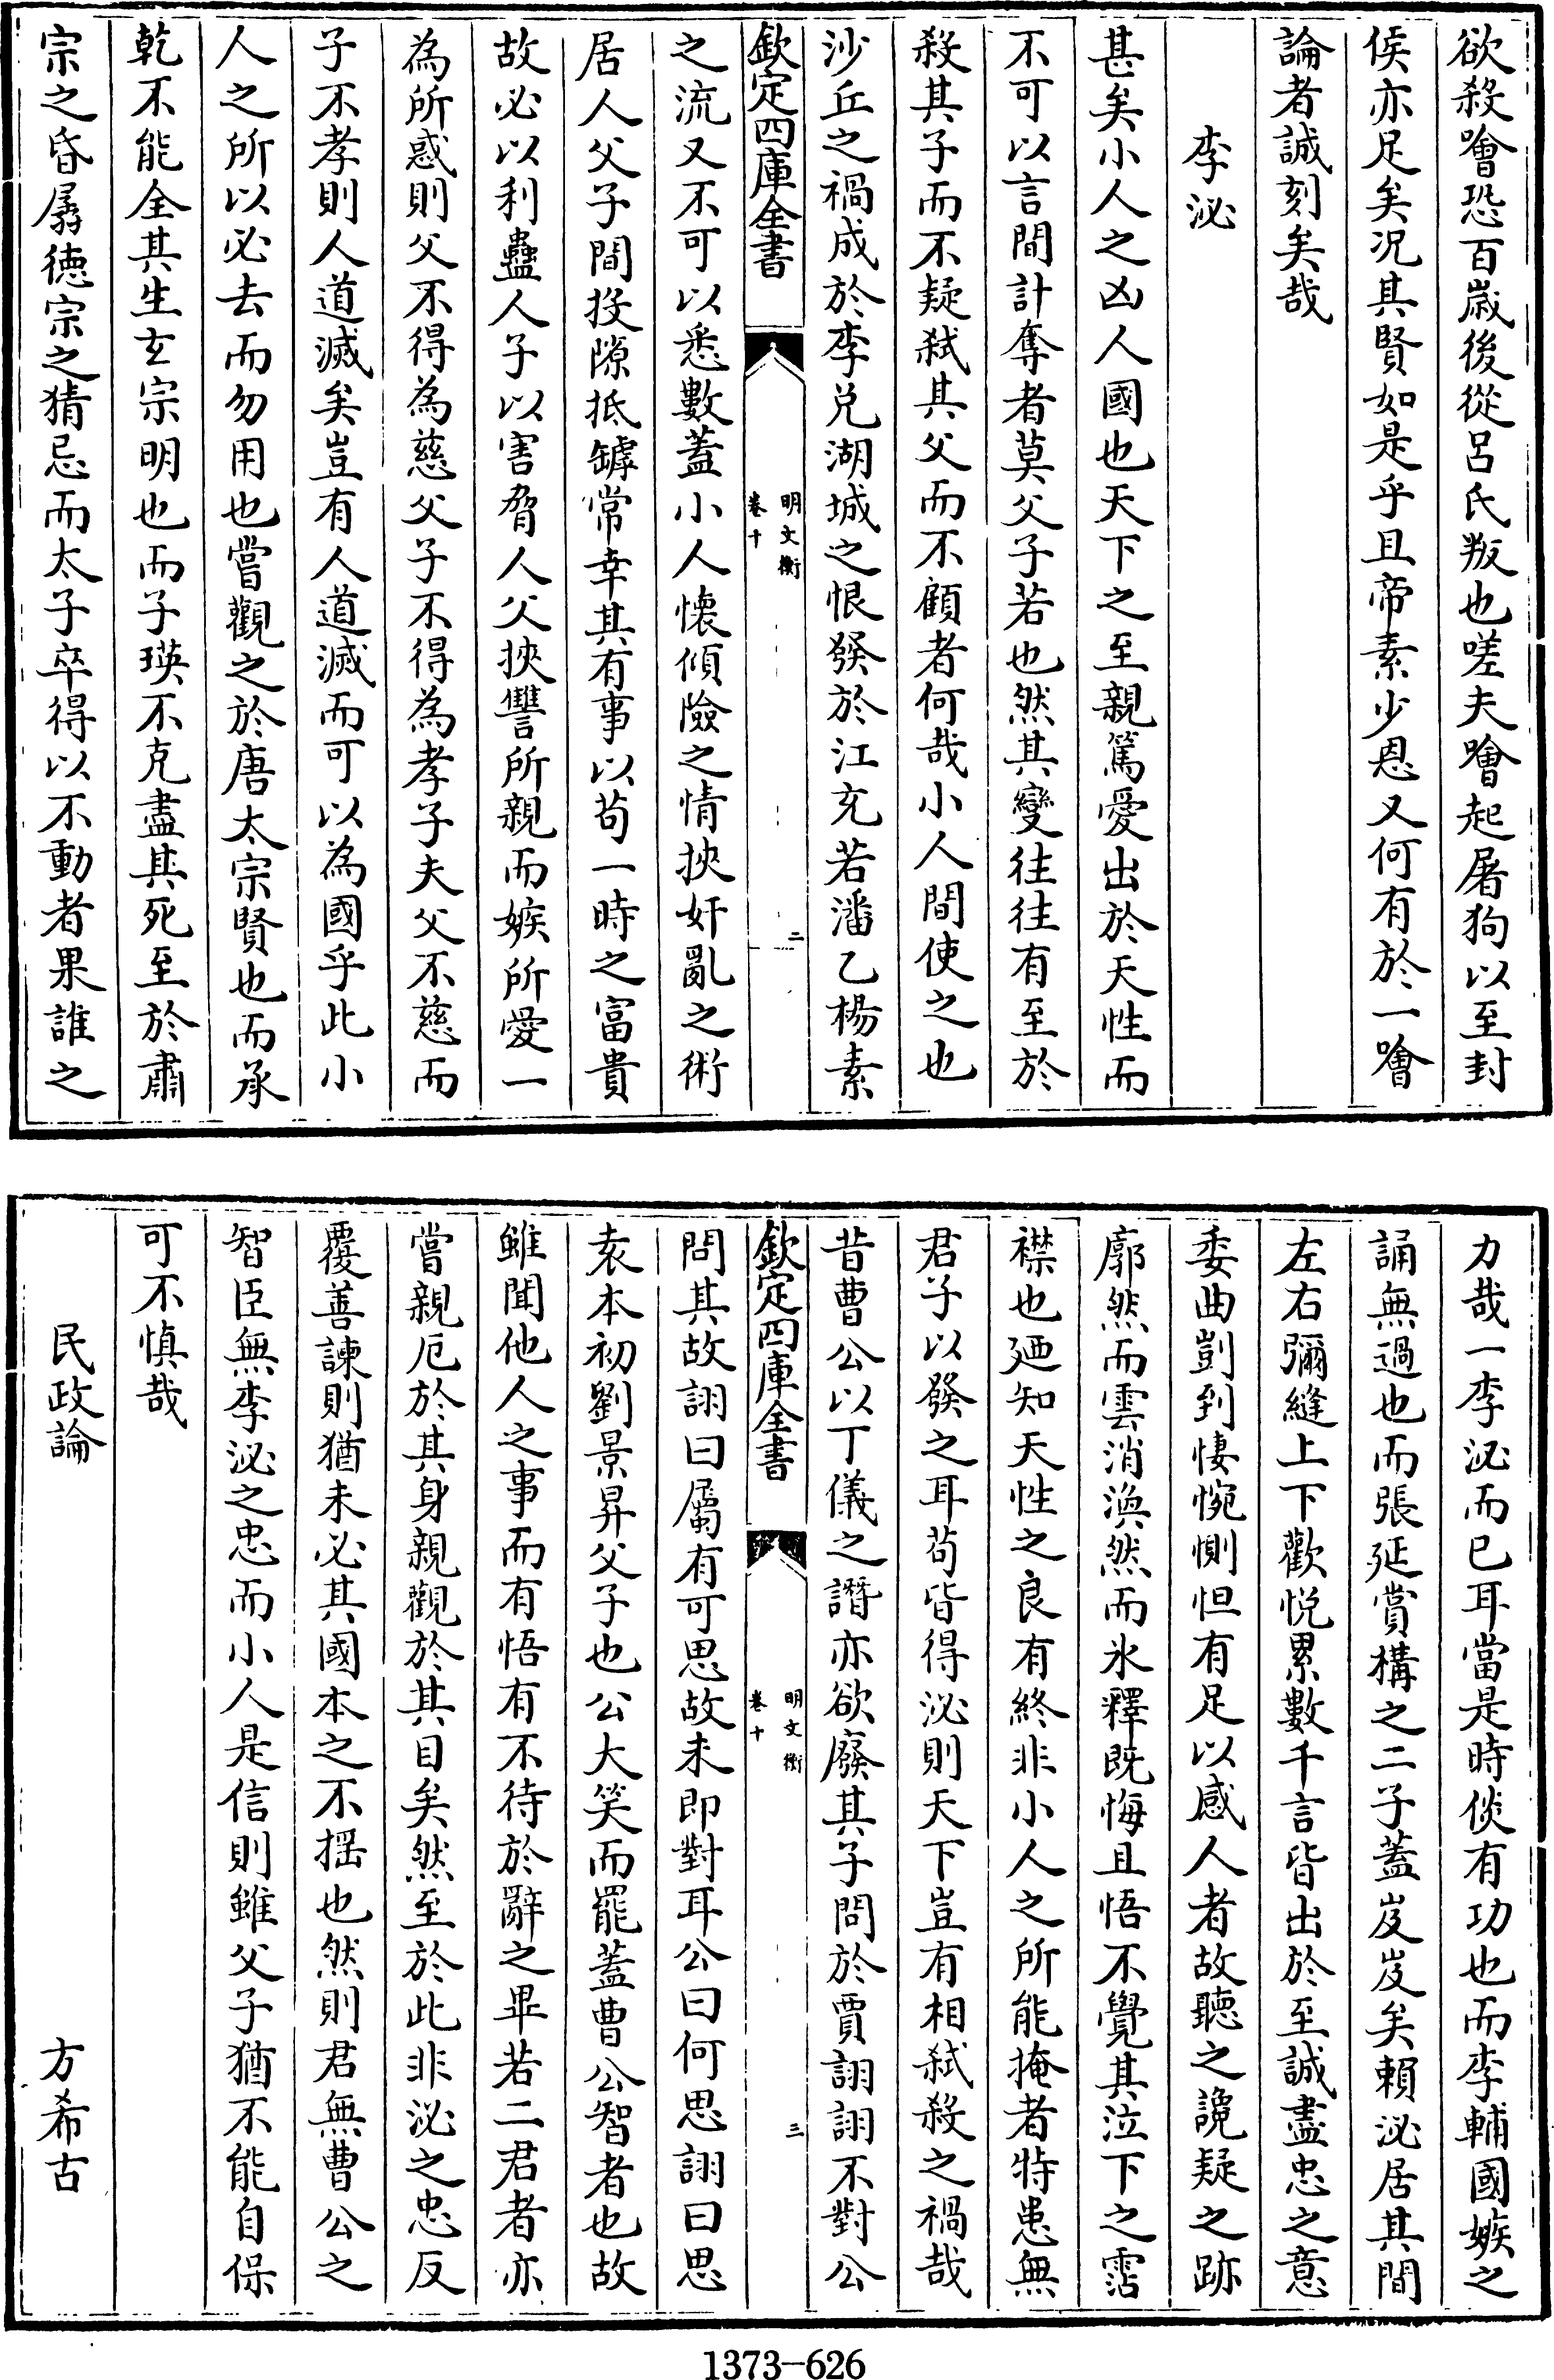 欲殺噲恐百嵗後從呂氏叛也嗟夫噲起屠狗以至封
侯亦足矣况其賢如是乎且帝素少恩又何有於一噲
論者誠刻矣哉
李泌
甚矣小人之凶人國也天下之至親篤愛出於天性而
不可以言間計奪者莫父子若也然其變往往有至於
殺其子而不疑弑其父而不顧者何哉小人間使之也
沙丘之禍成於李兌湖城之恨發於江充若潘乙楊素
欽定四庫全書
明文衡
卷十
二
之流又不可以悉數蓋小人懷傾險之情挾奸亂之術
居人父子間投隙抵罅常幸其有事以苟一時之富貴
故必以利蠱人子以害脅人父挾讐所親而嫉所愛一
為所惑則父不得為慈父子不得為孝子夫父不慈而
子不孝則人道滅矣豈有人道滅而可以為國乎此小
人之所以必去而勿用也嘗觀之於唐太宗賢也而承
乾不能全其生玄宗明也而子瑛不克盡其死至於肅
宗之昏孱德宗之猜忌而太子卒得以不動者果誰之
力哉一李泌而已耳當是時倓有功也而李輔國嫉之
誦無過也而張延賞構之二子蓋岌岌矣賴泌居其間
左右彌縫上下歡悅累數千言皆出於至誠盡忠之意
委曲剴到悽惋惻怛有足以感人者故聽之讒疑之跡
廓然而雲消渙然而氷釋既悔且悟不覺其泣下之霑
襟也廼知天性之良有終非小人之所能掩者特患無
君子以發之耳苟皆得泌則天下豈有相弑殺之禍哉
昔曹公以丁儀之譖亦欲廢其子問於賈詡詡不對公
欽定四庫全書
明文衡
卷十
三
問其故詡曰屬有可思故未即對耳公曰何思詡曰思
袁本初劉景昇父子也公大笑而罷蓋曹公智者也故
雖聞他人之事而有悟有不待於辭之畢若二君者亦
嘗親厄於其身親觀於其目矣然至於此非泌之忠反
覆善諫則猶未必其國本之不揺也然則君無曹公之
智臣無李泌之忠而小人是信則雖父子猶不能自保
可不慎哉
民政論
方希古
1373-626